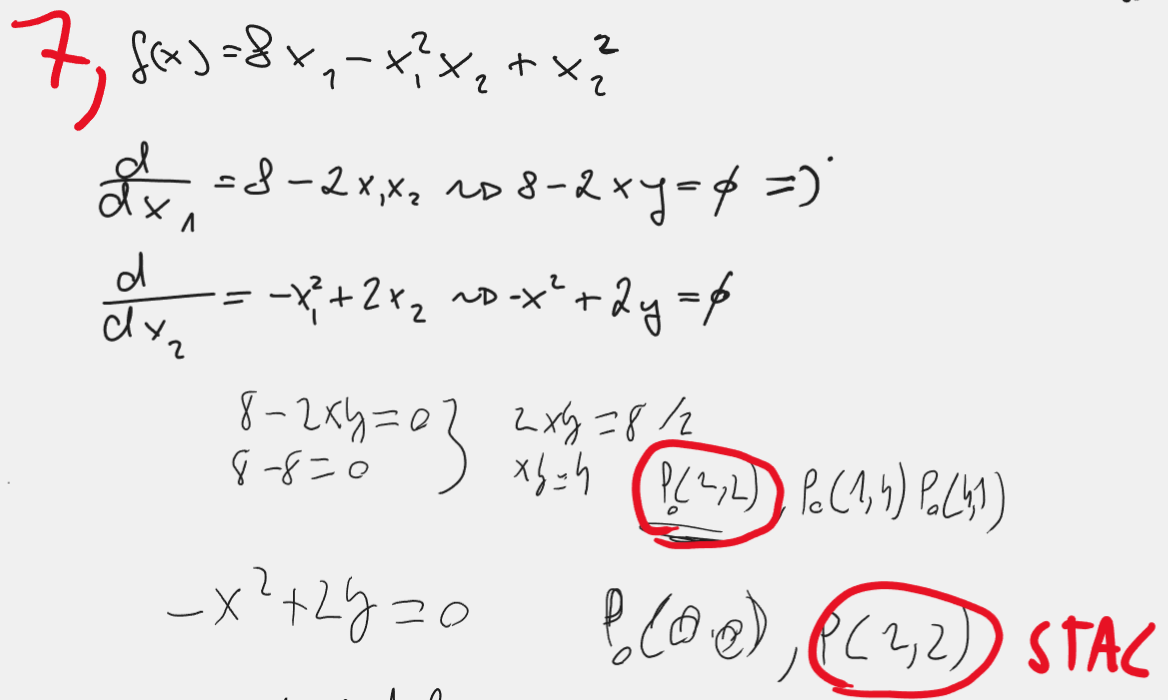 7, f(x) = 8x₁ - x₁²x₂ + x₂²
d/dx₁ = 8 - 2x₁x₂ ~> 8 - 2xy = ϕ =>
d/dx₂ = -x₁² + 2x₂ ~> -x² + 2y = ϕ
8 - 2xy = 0 } 2xy = 8 /2
8 - 8 = 0 xy = 4 P₀(2,2), P₀(1,4) P₀(4,1)
-x² + 2y = 0 P₀(0,0), P(2,2) STAC